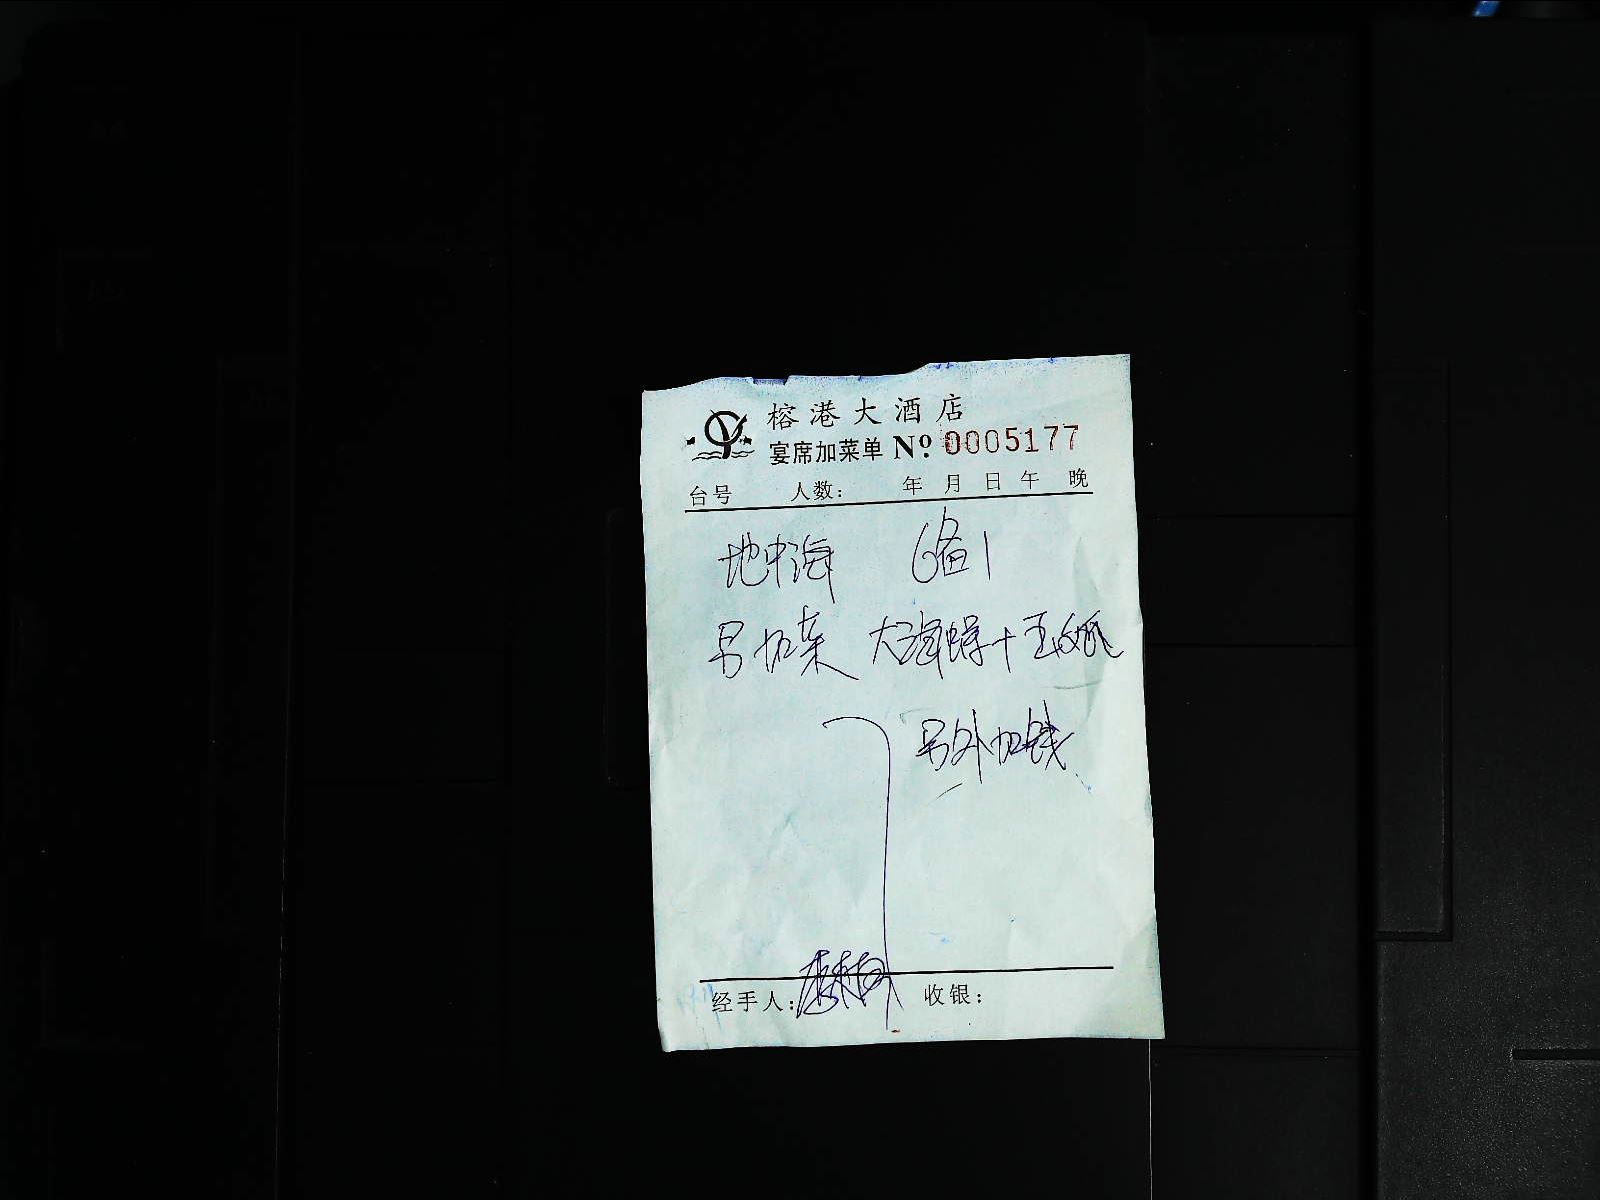 榕港大酒店
宴席加菜单 Nº: 0005177
台号 人数： 年 月 日 午 晚
地中海 6备1
另加菜 大海蟳十五
另外加钱
经手人： 收银：